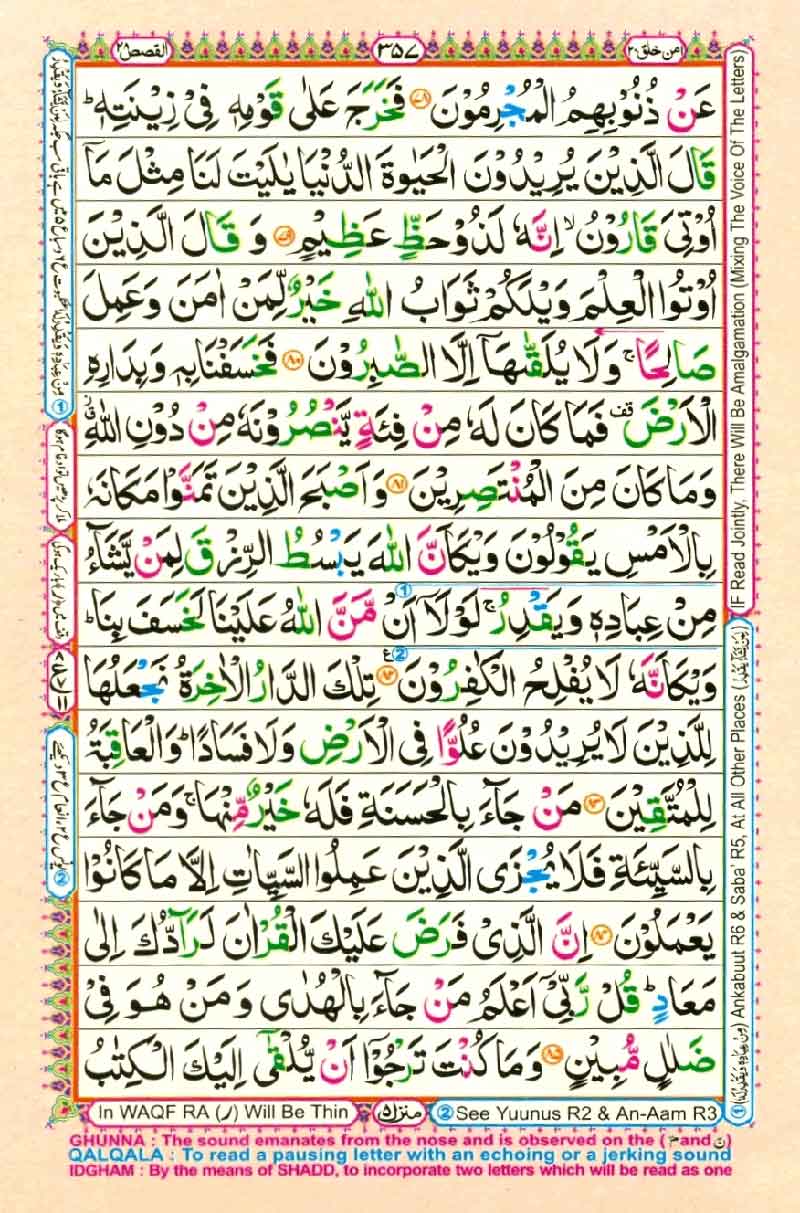 القصص ٢٨
٣٥٧
امن خلق ٢٠
عَنْ ذُنُوْبِهِمُ الْمُجْرِمُوْنَ ﴿٧٨﴾ فَخَرَجَ عَلٰى قَوْمِهٖ فِىْ زِيْنَتِهٖ ؕ
قَالَ الَّذِيْنَ يُرِيْدُوْنَ الْحَيٰوةَ الدُّنْيَا يٰلَيْتَ لَنَا مِثْلَ مَاۤ
اُوْتِىَ قَارُوْنُ ۙ اِنَّهٗ لَذُوْ حَظٍّ عَظِيْمٍ ﴿٧٩﴾ وَ قَالَ الَّذِيْنَ
اُوْتُوا الْعِلْمَ وَيْلَكُمْ ثَوَابُ اللّٰهِ خَيْرٌ لِّمَنْ اٰمَنَ وَعَمِلَ
صَالِحًا ۚ وَلَا يُلَقّٰٮهَاۤ اِلَّا الصّٰبِرُوْنَ ﴿٨٠﴾ فَخَسَفْنَا بِهٖ وَبِدَارِهِ
الْاَرْضَ ࣞ فَمَا كَانَ لَهٗ مِنْ فِئَةٍ يَّنْصُرُوْنَهٗ مِنْ دُوْنِ اللّٰهِ ۗ
وَمَا كَانَ مِنَ الْمُنْتَصِرِيْنَ ﴿٨١﴾ وَاَصْبَحَ الَّذِيْنَ تَمَنَّوْا مَكَانَهٗ
بِالْاَمْسِ يَقُوْلُوْنَ وَيْكَاَنَّ اللّٰهَ يَبْسُطُ الرِّزْقَ لِمَنْ يَّشَآءُ
مِنْ عِبَادِهٖ وَيَقْدِرُ ۚ لَوْلَاۤ اَنْ مَّنَّ اللّٰهُ عَلَيْنَا لَخَسَفَ بِنَا ؕ
وَيْكَاَنَّهٗ لَا يُفْلِحُ الْكٰفِرُوْنَ ﴿٨٢﴾ تِلْكَ الدَّارُ الْاٰخِرَةُ نَجْعَلُهَا
لِلَّذِيْنَ لَا يُرِيْدُوْنَ عُلُوًّا فِى الْاَرْضِ وَلَا فَسَادًا ؕ وَالْعَاقِبَةُ
لِلْمُتَّقِيْنَ ﴿٨٣﴾ مَنْ جَآءَ بِالْحَسَنَةِ فَلَهٗ خَيْرٌ مِّنْهَا ۚ وَمَنْ جَآءَ
بِالسَّيِّئَةِ فَلَا يُجْزَى الَّذِيْنَ عَمِلُوا السَّيِّاٰتِ اِلَّا مَا كَانُوْا
يَعْمَلُوْنَ ﴿٨٤﴾ اِنَّ الَّذِىْ فَرَضَ عَلَيْكَ الْقُرْاٰنَ لَرَآدُّكَ اِلٰى
مَعَادٍ ؕ قُلْ رَّبِّىْۤ اَعْلَمُ مَنْ جَآءَ بِالْهُدٰى وَمَنْ هُوَ فِىْ
ضَلٰلٍ مُّبِيْنٍ ﴿٨٥﴾ وَمَا كُنْتَ تَرْجُوْۤا اَنْ يُّلْقٰٓى اِلَيْكَ الْكِتٰبُ
IF Read Jointly, There Will Be Amalgamation (Mixing The Voice Of The Letters)
① (مِنْ عِبَادِهٖ وَيَقْدِرُ لَهٗ) Ankabuut R6 & Saba' R5, At All Other Places (لِمَنْ يَّشَآءُ وَيَقْدِرُ)
In WAQF RA (ر) Will Be Thin
منزل ٥
② See Yuunus R2 & An-Aam R3
GHUNNA : The sound emanates from the nose and is observed on the (م and ن)
QALQALA : To read a pausing letter with an echoing or a jerking sound
IDGHAM : By the means of SHADD, to incorporate two letters which will be read as one